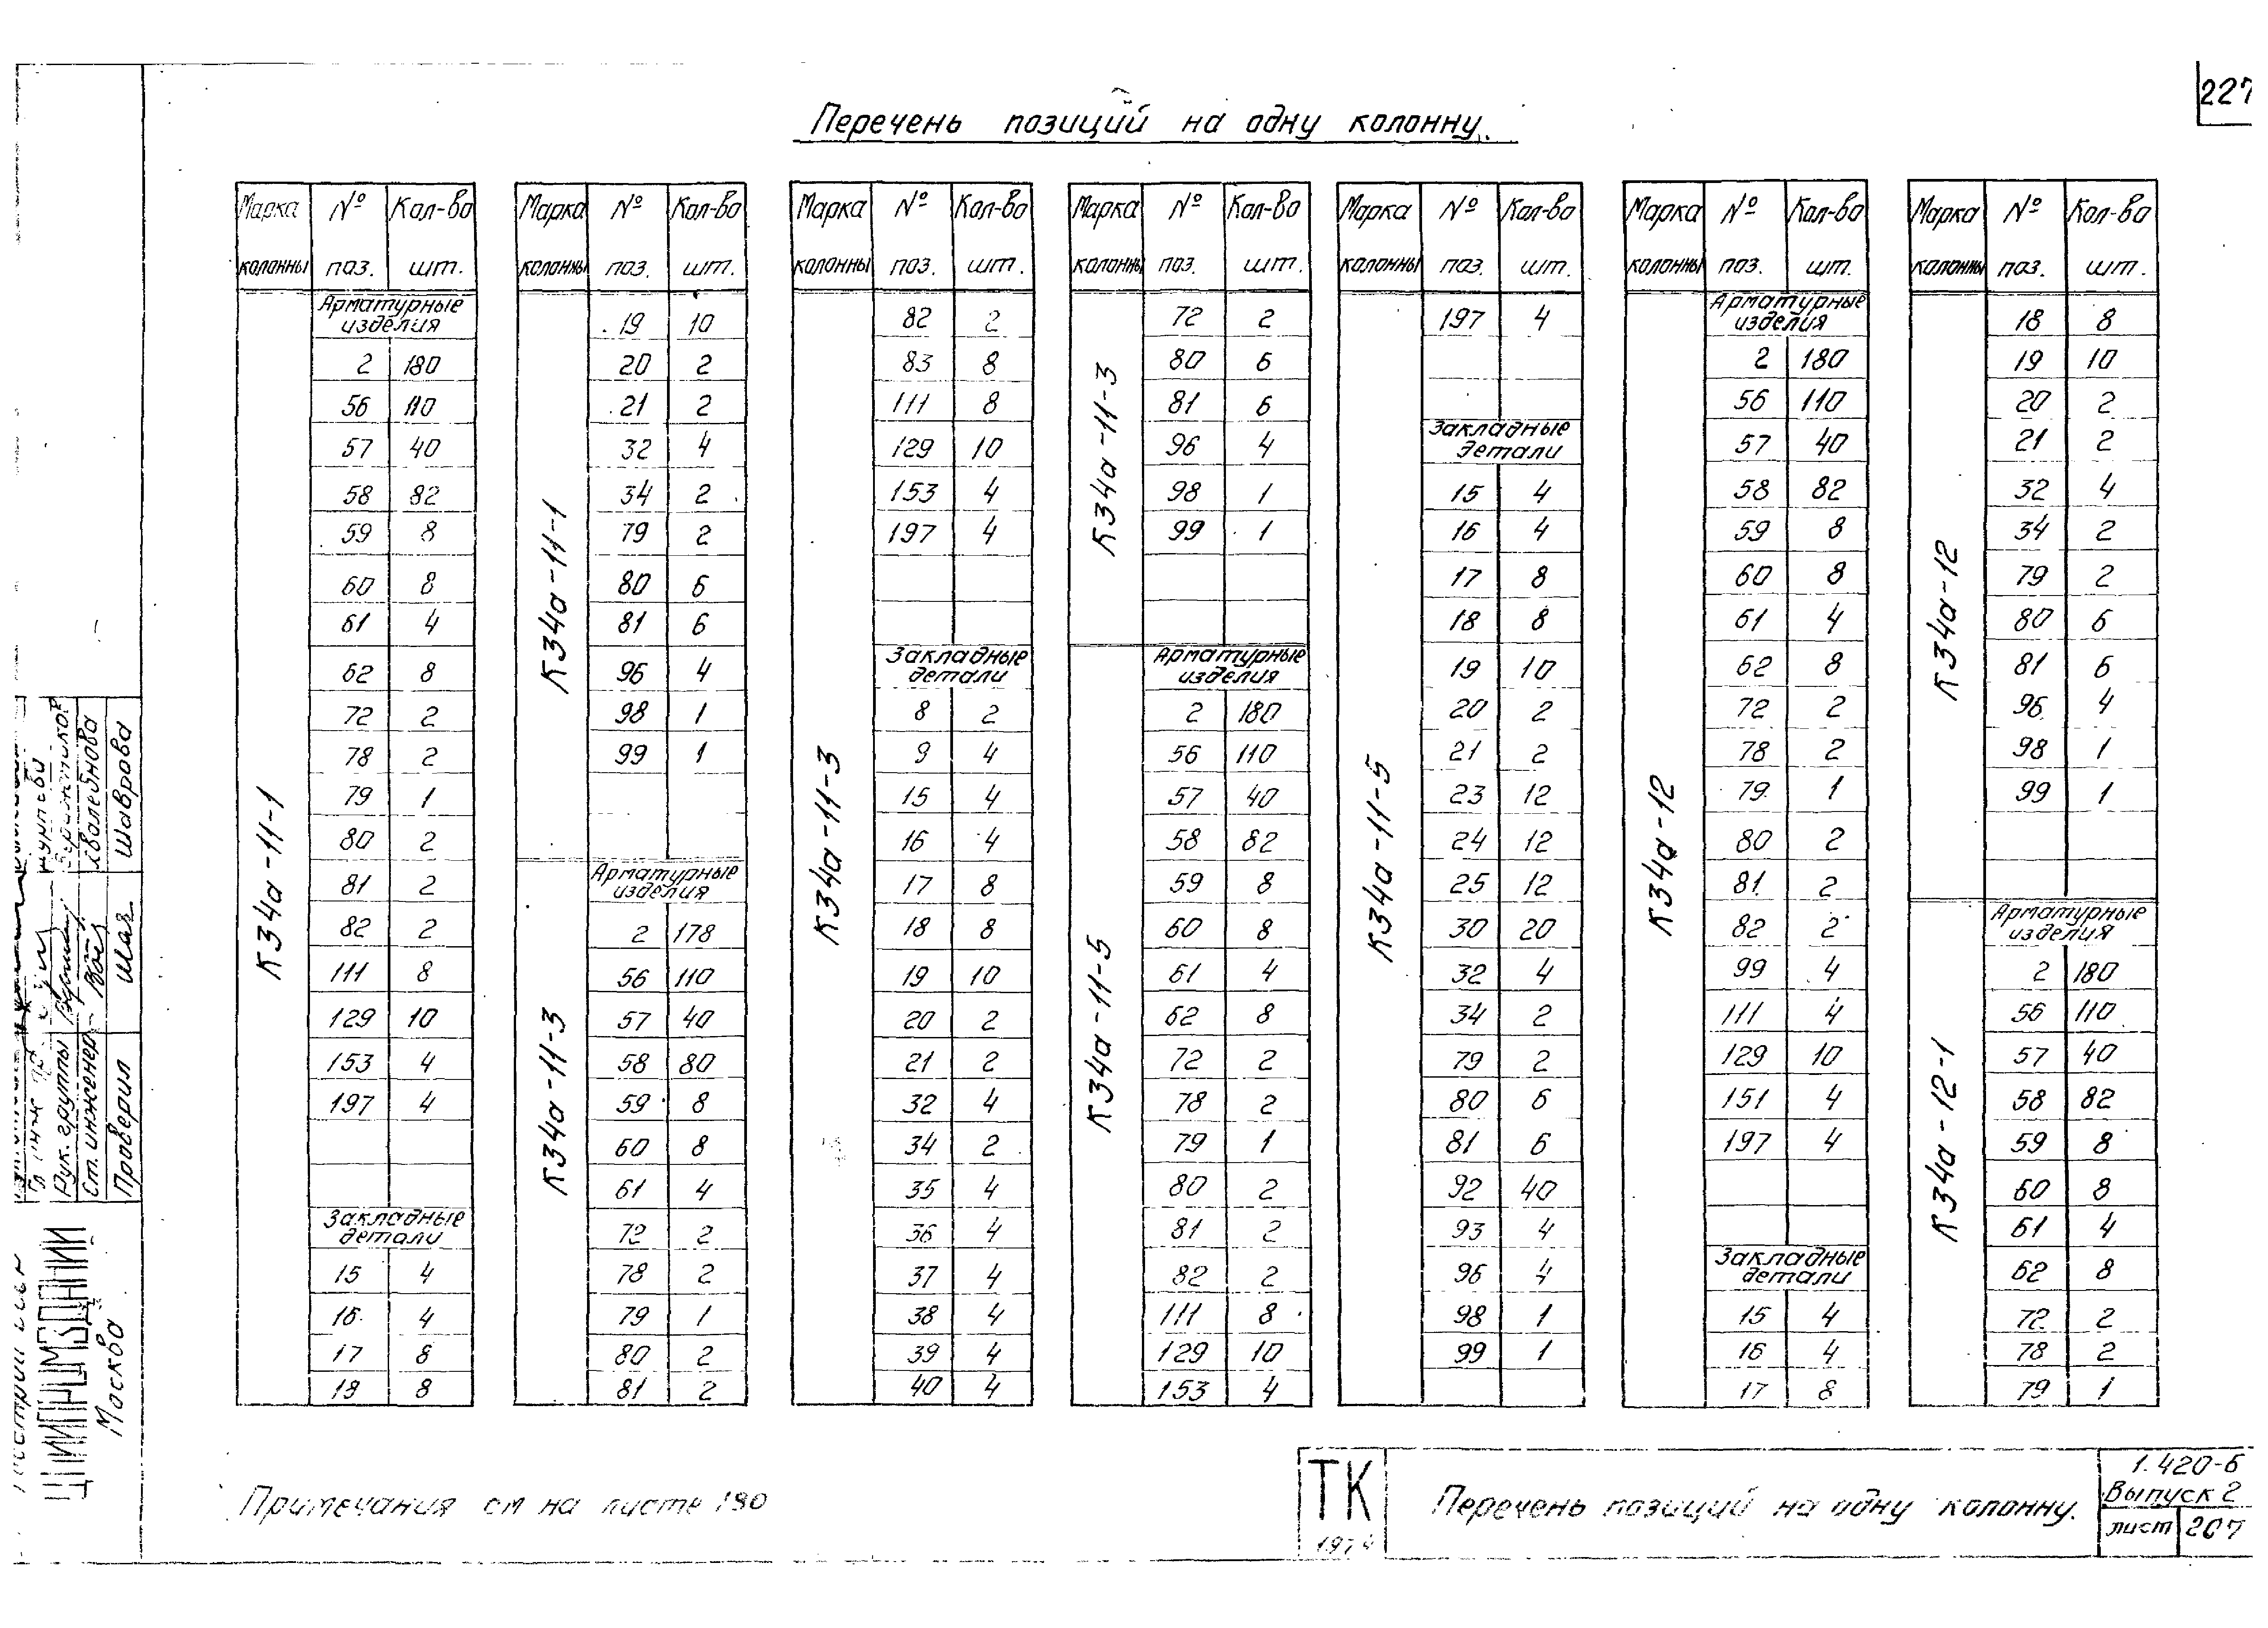 227
Перечень позиций на одну колонну.
Марка колонны № поз. Кол-во шт.
К34а-11-1
Арматурные изделия
2 180
56 110
57 40
58 82
59 8
60 8
61 4
62 8
72 2
78 2
79 1
80 2
81 2
82 2
111 8
129 10
153 4
197 4
Закладные детали
15 4
16 4
17 8
18 8
Марка колонны № поз. Кол-во шт.
К34а-11-1
19 10
20 2
21 2
32 4
34 2
79 2
80 6
81 6
96 4
98 1
99 1
К34а-11-3
Арматурные изделия
2 178
56 110
57 40
58 80
59 8
60 8
61 4
72 2
78 2
79 1
80 2
81 2
Марка колонны № поз. Кол-во шт.
К34а-11-3
82 2
83 8
111 8
129 10
153 4
197 4
Закладные детали
8 2
9 4
15 4
16 4
17 8
18 8
19 10
20 2
21 2
32 4
34 2
35 4
36 4
37 4
38 4
39 4
40 4
Марка колонны № поз. Кол-во шт.
К34а-11-3
72 2
80 6
81 6
96 4
98 1
99 1
К34а-11-5
Арматурные изделия
2 180
56 110
57 40
58 82
59 8
60 8
61 4
62 8
72 2
78 2
79 1
80 2
81 2
82 2
111 8
129 10
153 4
Марка колонны № поз. Кол-во шт.
К34а-11-5
197 4
Закладные детали
15 4
16 4
17 8
18 8
19 10
20 2
21 2
23 12
24 12
25 12
30 20
32 4
34 2
79 2
80 6
81 6
92 40
93 4
96 4
98 1
99 1
Марка колонны № поз. Кол-во шт.
К34а-12
Арматурные изделия
2 180
56 110
57 40
58 82
59 8
60 8
61 4
62 8
72 2
78 2
79 1
80 2
81 2
82 2
99 4
111 4
129 10
151 4
197 4
Закладные детали
15 4
16 4
17 8
Марка колонны № поз. Кол-во шт.
К34а-12
18 8
19 10
20 2
21 2
32 4
34 2
79 2
80 6
81 6
96 4
98 1
99 1
К34а-12-1
Арматурные изделия
2 180
56 110
57 40
58 82
59 8
60 8
61 4
62 8
72 2
78 2
79 1
Рук. группы
Ст. инженер
Проверил Шав Шаврова
ЦНИИПРОМЗДАНИЙ
Москва
Примечания см на листе 190
ТК
1974
Перечень позиций на одну колонну.
1.420-6
Выпуск 2
лист 207